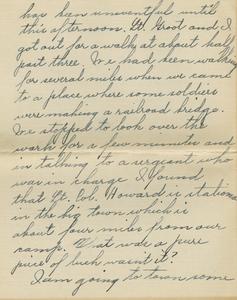 has been uneventful until
this afternoon. Lt. Groot and I
got out for a walk, at about half
past three. We had been walking
for several miles when we came
to a place where some soldiers
were making a railroad bridge.
We stopped to look over the
work for a few minutes and
in talking to a sergeant who
was in charge I found
that Lt. Col. Howard is stationed
in the big town which is
about four miles from our
camp. What was a pure
piece of luck, wasn't it?
I am going to town some